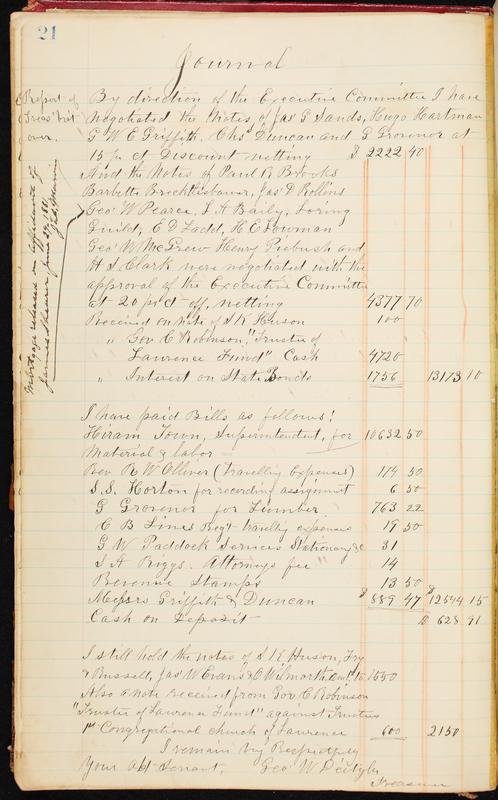 21
Journal
Report of
Treas'
over.
By direction of the Executive Committee I have
negotiated the Notes of Jas G Sands, Hugo Hartman
G W E Griffith, Chs Duncan and G Grovenor at
15 pr ct Discount netting $ 2222 40
And the Notes of Paul R Brooks
Barbetta Jas D Rollins
Geo W Pearce, S A Baily, Loring
Guild, E D Ladd, H C Bowman
Geo W McGrew Henry and
H S Clark were negotiated with the
approval of the Executive Committee
at 20 pr ct off, netting 4377 70
Received on Note of S K Huson 100
" Gov C Robinson, "Trustee of
Lawrence Fund" Cash 4720
" Interest on State Bonds 1756 13173 10
Mortgage released on affidavit of
James Shearer June 29, 18
I have paid Bills as follows!
Hiram Town, Superintendent, for 10632 50
Material & labor
Rev R W Olliver (travelling expenses) 174 50
S.S. Horton for recording assignment 6 50
G Grovenor for Lumber 763 22
C B Lines travelling expenses 19 50
G W Paddock Services Stationary &c 31
S A Riggs. Attorneys fee " 14
Revenue Stamps 13 50
Messrs Griffith & Duncan $ 889 47 $ 12544 15
Cash on Deposit $ 628 91
I still hold the notes of S K Huson, Fry
& Russell, Jas W Evans & C Wilmarth amt to 1550
Also a note received from Gov C Robinson
"Trustee of Lawrence Fund" against Trustees
1st Congregational church of Lawrence 600 2150
I remain very Respectfully
Your Obt Servant, Geo W Deitzler
Treasurer